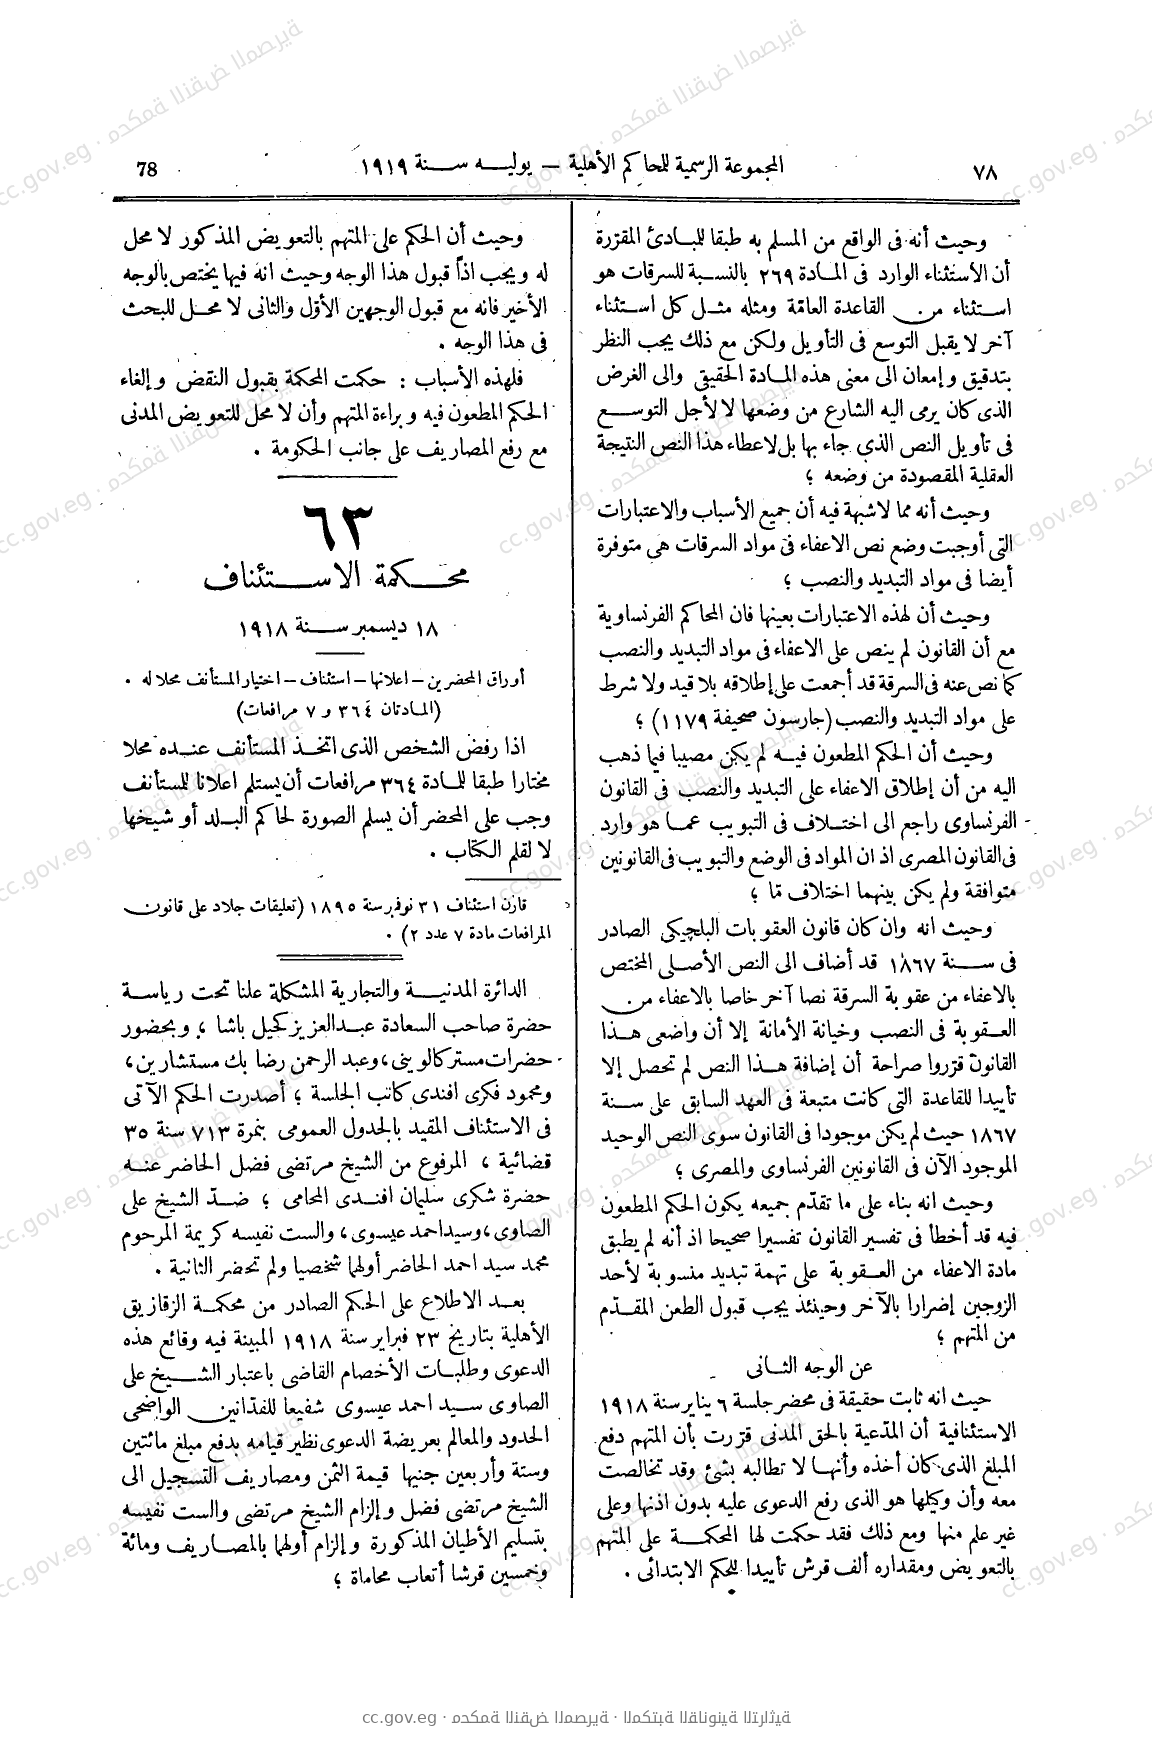 ٧٨
المجموعة الرسمية للمحاكم الأهلية — يوليه سنة ١٩١٩
78
وحيث أنه فى الواقع من المسلم به طبقا للبادئ المقررة
أن الأستثناء الوارد فى المادة ٢٦٩ بالنسبة للسرقات هو
استثناء من القاعدة العامة ومثله مثل كل استثناء
آخر لا يقبل التوسع فى التأويل ولكن مع ذلك يجب النظر
بتدقيق وإمعان الى معنى هذه المادة الحقيقى والى الغرض
الذى كان يرمى اليه الشارع من وضعها لا لأجل التوسع
فى تأويل النص الذي جاء بها بل لاعطاء هذا النص النتيجة
العقلية المقصودة من وضعه ؛
وحيث أنه مما لا شبهة فيه أن جميع الأسباب والاعتبارات
التى أوجبت وضع نص الاعفاء فى مواد السرقات هى متوفرة
أيضا فى مواد التبديد والنصب ؛
وحيث أن لهذه الاعتبارات بعينها فان المحاكم الفرنساوية
مع أن القانون لم ينص على الاعفاء فى مواد التبديد والنصب
كما نص عنه فى السرقة قد أجمعت على إطلاقه بلا قيد ولا شرط
على مواد التبديد والنصب (جارسون صحيفة ١١٧٩) ؛
وحيث أن الحكم المطعون فيه لم يكن مصيبا فيما ذهب
اليه من أن إطلاق الاعفاء على التبديد والنصب فى القانون
الفرنساوى راجع الى اختلاف فى التبويب عما هو وارد
فى القانون المصرى اذ ان المواد فى الوضع والتبويب فى القانونين
متوافقة ولم يكن بينهما اختلاف مّا ؛
وحيث انه وان كان قانون العقوبات البلجيكى الصادر
فى سنة ١٨٦٧ قد أضاف الى النص الأصلى المختص
بالاعفاء من عقوبة السرقة نصا آخر خاصا بالاعفاء من
العقوبة فى النصب وخيانة الأمانة إلا أن واضعى هذا
القانون قرروا صراحة أن إضافة هذا النص لم تحصل إلا
تأييدا للقاعدة التى كانت متبعة فى العهد السابق على سنة
١٨٦٧ حيث لم يكن موجودا فى القانون سوى النص الوحيد
الموجود الآن فى القانونين الفرنساوى والمصرى ؛
وحيث انه بناء على ما تقدّم جميعه يكون الحكم المطعون
فيه قد أخطأ فى تفسير القانون تفسيرا صحيحا اذ أنه لم يطبق
مادة الاعفاء من العقوبة على تهمة تبديد منسوبة لأحد
الزوجين إضرارا بالآخر وحينئذ يجب قبول الطعن المقدّم
من المتهم ؛
عن الوجه الثانى
حيث انه ثابت حقيقة فى محضر جلسة ٦ يناير سنة ١٩١٨
الاستئنافية أن المدّعية بالحق المدنى قررت بأن المتهم دفع
المبلغ الذى كان أخذه وأنها لا تطالبه بشئ وقد تخالصت
معه وأن وكيلها هو الذى رفع الدعوى عليه بدون اذنها وعلى
غير علم منها ومع ذلك فقد حكمت لها المحكمة على المتهم
بالتعويض ومقداره ألف قرش تأييدا للحكم الابتدائى .
وحيث أن الحكم على المتهم بالتعويض المذكور لا محل
له ويجب اذاً قبول هذا الوجه وحيث انه فيما يختص بالوجه
الأخير فانه مع قبول الوجهين الأوّل والثانى لا محل للبحث
فى هذا الوجه .
فلهذه الأسباب : حكمت المحكمة بقبول النقض وإلغاء
الحكم المطعون فيه وبراءة المتهم وأن لا محل للتعويض المدنى
مع رفع المصاريف على جانب الحكومة .
٦٣
محكمة الاستئناف
١٨ ديسمبر سنة ١٩١٨
أوراق المحضرين – اعلانها – استئناف – اختيار المستأنف محلا له .
(المادتان ٣٦٤ و ٧ مرافعات)
اذا رفض الشخص الذى اتخذ المستأنف عنده محلا
مختارا طبقا للمادة ٣٦٤ مرافعات أن يستلم اعلانا للمستأنف
وجب على المحضر أن يسلم الصورة لحاكم البلد أو شيخها
لا لقلم الكتاب .
قارن استئناف ٣١ نوفمبر سنة ١٨٩٥ (تعليقات جلاد على قانون
المرافعات مادة ٧ عدد ٢) .
الدائرة المدنية والتجارية المشكلة علنا تحت رياسة
حضرة صاحب السعادة عبد العزيز كحيل باشا ؛ وبحضور
حضرات مستر كالويني، وعبد الرحمن رضا بك مستشارين،
ومحمود فكرى افندى كاتب الجلسة ؛ أصدرت الحكم الآتى
فى الاستئناف المقيد بالجدول العمومى بنمرة ٧١٣ سنة ٣٥
قضائية ، المرفوع من الشيخ مرتضى فضل الحاضر عنه
حضرة شكرى سليمان افندى المحامى ؛ ضدّ الشيخ على
الصاوى، وسيد احمد عيسوى، والست نفيسه كريمة المرحوم
محمد سيد احمد الحاضر أولهما شخصيا ولم تحضر الثانية .
بعد الاطلاع على الحكم الصادر من محكمة الزقازيق
الأهلية بتاريخ ٢٣ فبراير سنة ١٩١٨ المبينة فيه وقائع هذه
الدعوى وطلبات الأخصام القاضى باعتبار الشيخ على
الصاوى سيد احمد عيسوى شفيعا للفدّانين الواضحى
الحدود والمعالم بعريضة الدعوى نظير قيامه بدفع مبلغ مائتين
وستة وأربعين جنيها قيمة الثمن ومصاريف التسجيل الى
الشيخ مرتضى فضل وإلزام الشيخ مرتضى والست نفيسه
بتسليم الأطيان المذكورة وإلزام أولهما بالمصاريف ومائة
وخمسين قرشا أتعاب محاماة ؛
cc.gov.eg · محكمة النقض المصرية · المكتبة القانونية التراثية